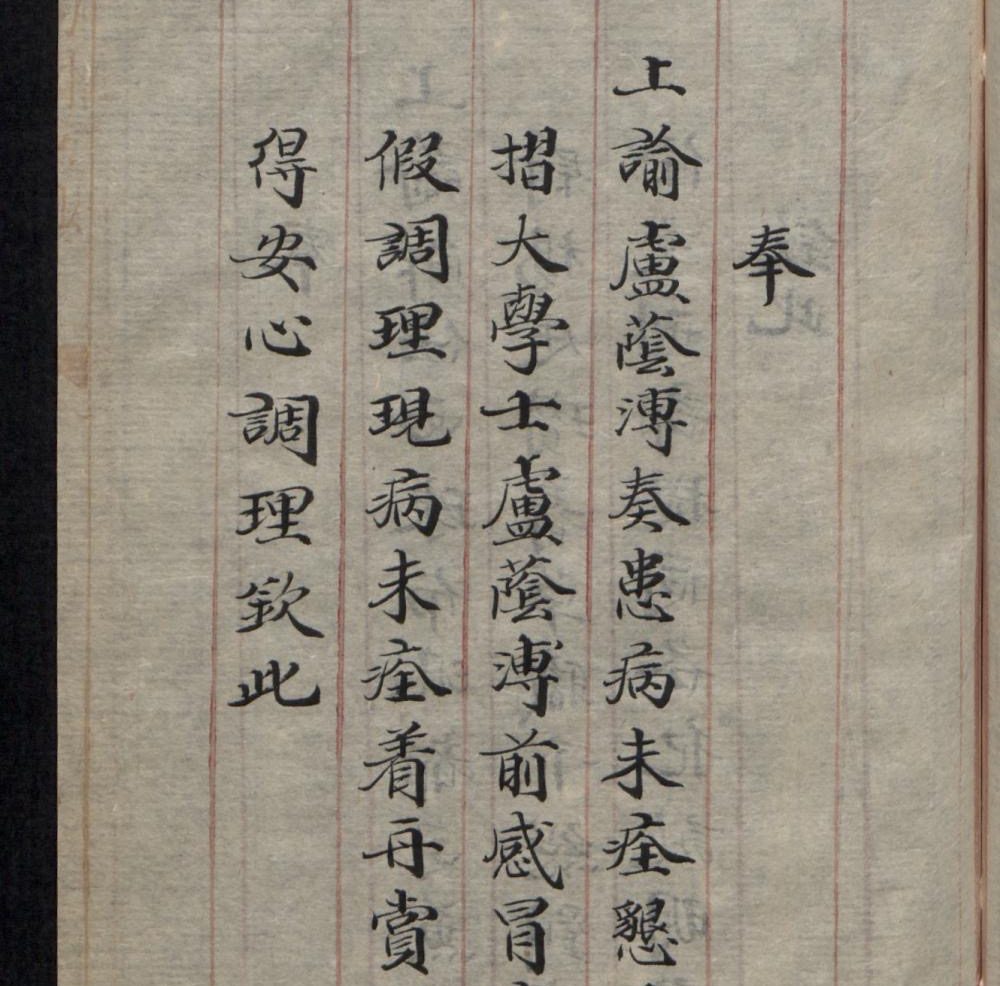 奉
上諭盧蔭溥奏患病未痊懇
摺大學士盧蔭溥前感冒
假調理現病未痊着再賞
得安心調理欽此